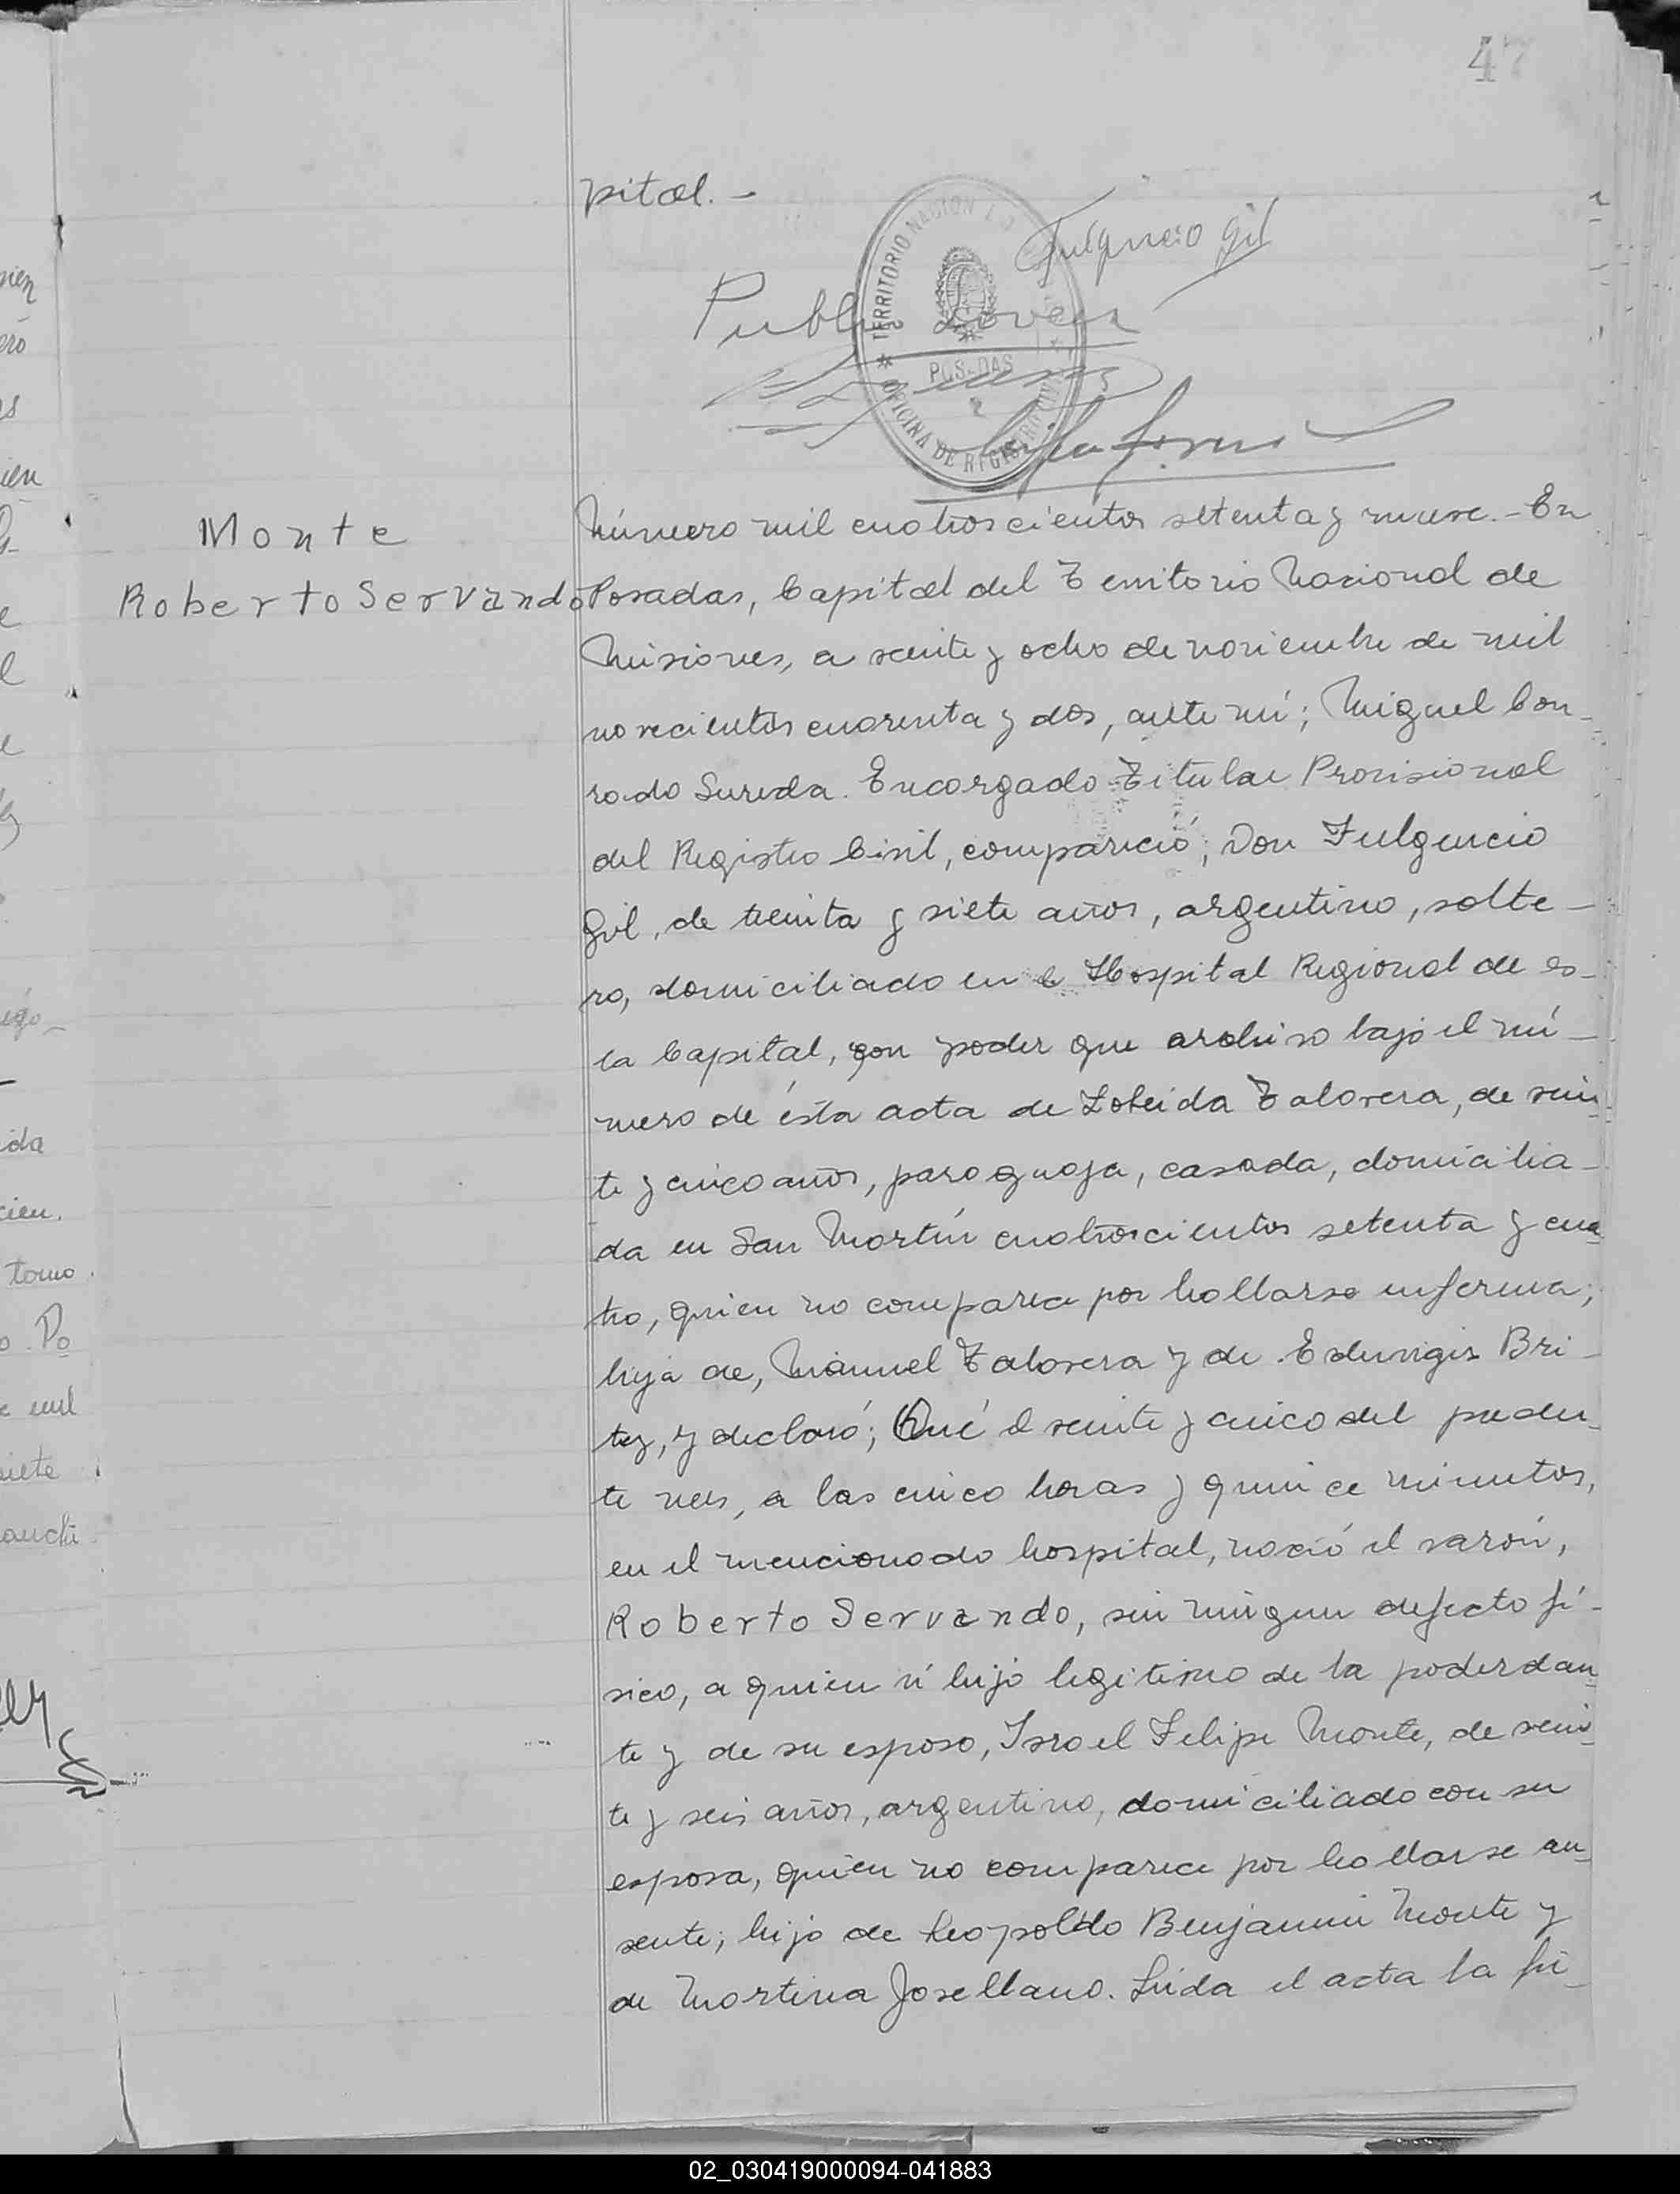 47
pital. -
Fulgencio Gil
TERRITORIO NACIONAL
POSADAS
OFICINA DE REGISTRO CIVIL
Monte
Roberto Servando
Número mil cuatroscientos setenta y nueve. - En
Posadas, Capital del Territorio Nacional de
Misiones, a veinte y ocho de noviembre de mil
novecientos cuarenta y dos, ante mí; Miguel Con-
rado Sureda. Encargado Titular Provisional
del Registro Civil, compareció; Don Fulgencio
Gil, de treinta y siete años, argentino, solte-
ro, domiciliado en el Hospital Regional de es-
ta Capital, con poder que archivo bajo el nú-
mero de ésta acta de Zobeida Talavera, de vein-
te y cinco años, paraguaya, casada, domicilia-
da en San Martín cuatroscientos setenta y cua-
tro, quien no comparece por hallarse enferma;
hija de, Manuel Talavera y de Eduvigis Bri-
tez, y declaró; Qué el veinte y cinco del preden-
te mes, a las cinco horas y quince minutos,
en el mencionado hospital, nació el varón,
Roberto Servando, sin ningun defecto fí-
sico, a quien ví hijo legitimo de la poderdan-
te y de su esposo, Israel Felipe Monte, de vein-
te y seis años, argentino, domiciliado con su
esposa, quien no comparece por hallarse au-
sente; hijo de Leopoldo Benjamin Monte y
de Martina Josellano. Leida el acta la fi-
02_030419000094-041883